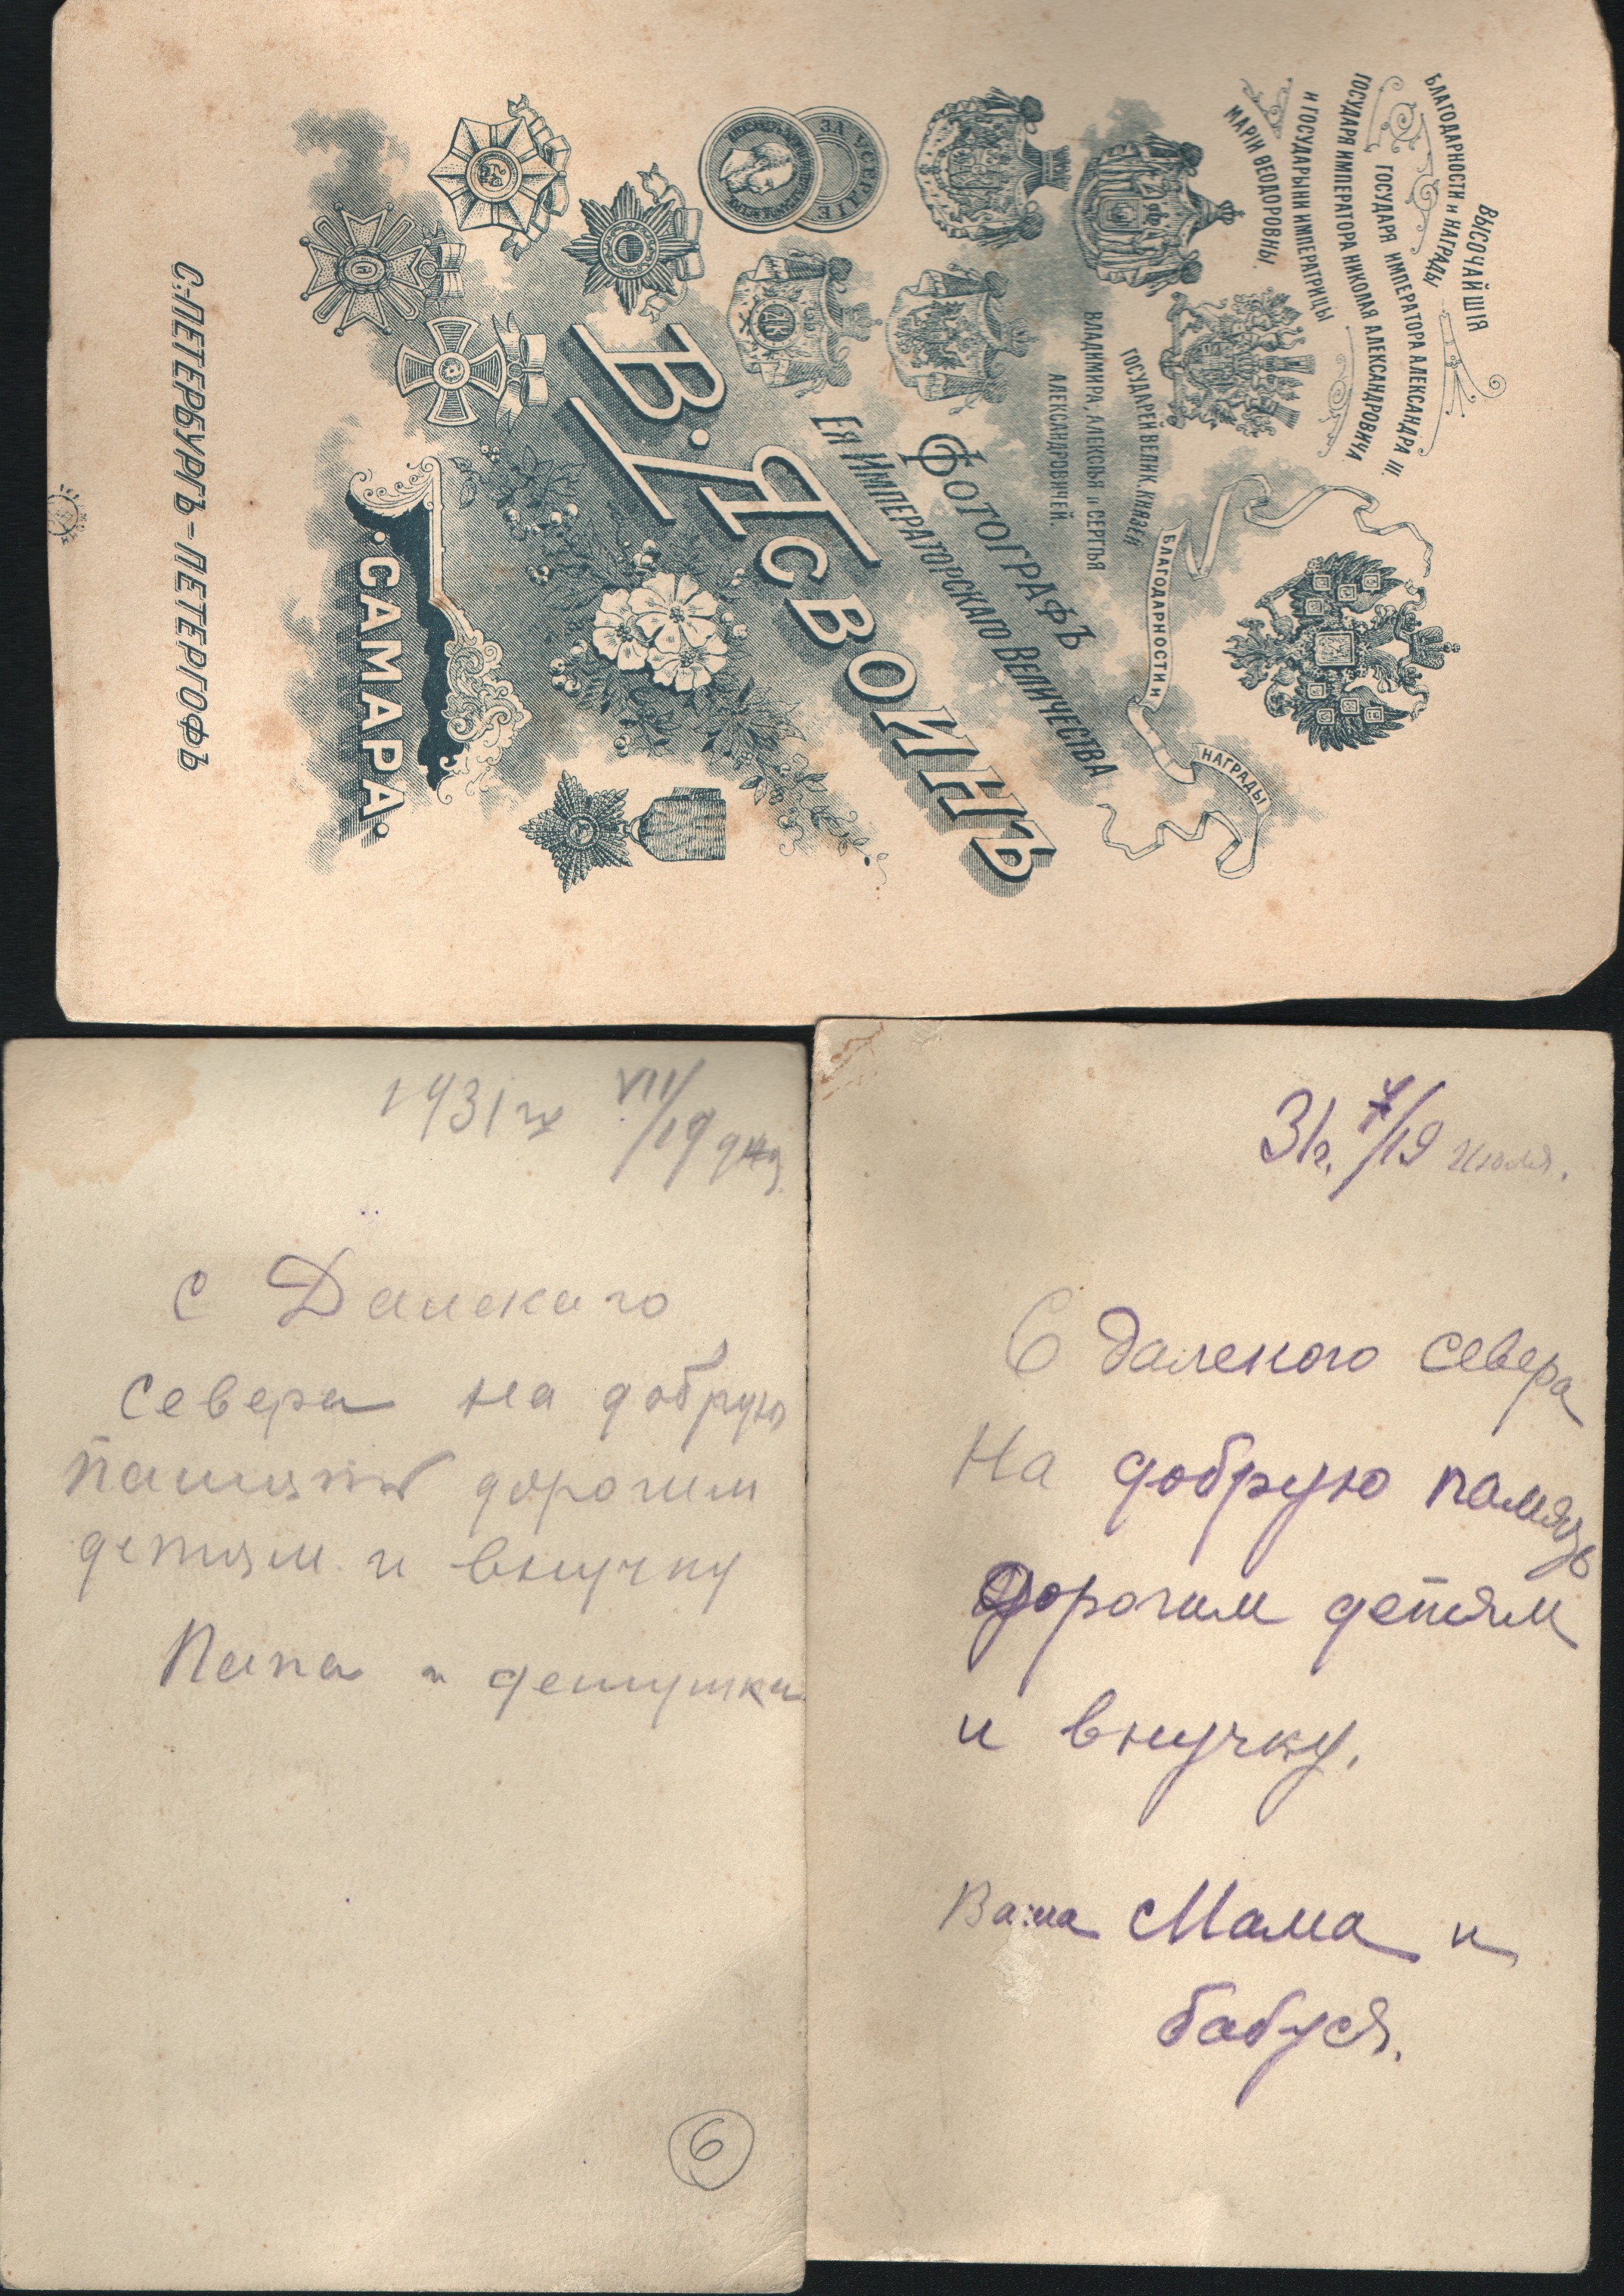 ВЫСОЧАЙШІЯ
БЛАГОДАРНОСТИ и НАГРАДЫ
ГОСУДАРЯ ИМПЕРАТОРА АЛЕКСАНДРА III.
ГОСУДАРЯ ИМПЕРАТОРА НИКОЛАЯ АЛЕКСАНДРОВИЧА
И ГОСУДАРЫНИ ИМПЕРАТРИЦЫ
МАРІИ ѲЕОДОРОВНЫ.
БЛАГОДАРНОСТИ и
НАГРАДЫ
ГОСУДАРЕЙ ВЕЛИК. КНЯЗЕЙ
ВЛАДИМИРА, АЛЕКСѢЯ и СЕРГѢЯ
АЛЕКСАНДРОВИЧЕЙ.
ФОТОГРАФЪ
ЕЯ ИМПЕРАТОРСКАГО ВЕЛИЧЕСТВА
В. ЯСВОИНЪ
ЗА УСЕРДІЕ
·САМАРА·
С.-ПЕТЕРБУРГЪ-ПЕТЕРГОФЪ
1931 г VII/19 дня
с Далекаго
севера на добрую
память дорогим
детям и внучку
Папа и дедушка
6
31г. /19 Июля.
С далекого севера
На добрую память
Дорогим детям
и внучку.
Ваша Мама и
бабуся.